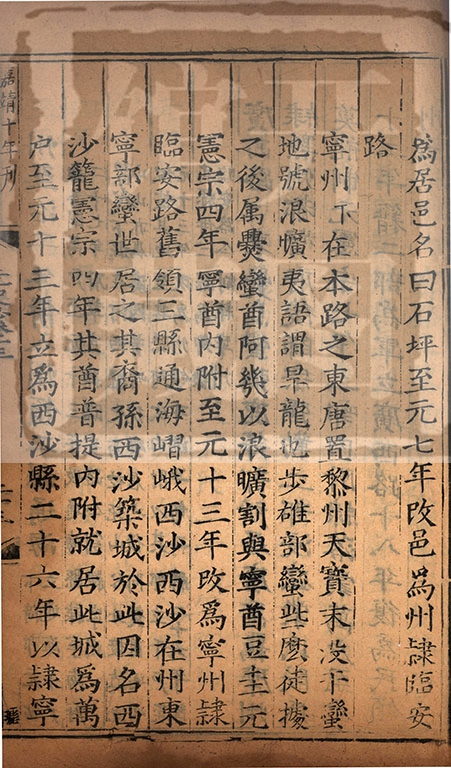 爲居邑名曰石坪至元七年改邑爲州隷臨安
路
寧州下在本路之東唐置黎州天寶末没于蠻
地號浪曠夷語謂旱龍也步雄部蠻些麽徒據
之後属㸑蠻酋阿幾以浪曠割與寧酋豆圭元
憲宗四年寧酋内附至元十三年改爲寧州隷
臨安路舊領三縣通海嶍峨西沙西沙在州東
寧部蠻世居之其裔孫西沙築城於此因名西
沙籠憲宗四年其酋普提内附就居此城爲萬
户至元十三年立爲西沙縣二十六年以隷寧
嘉靖十年刊